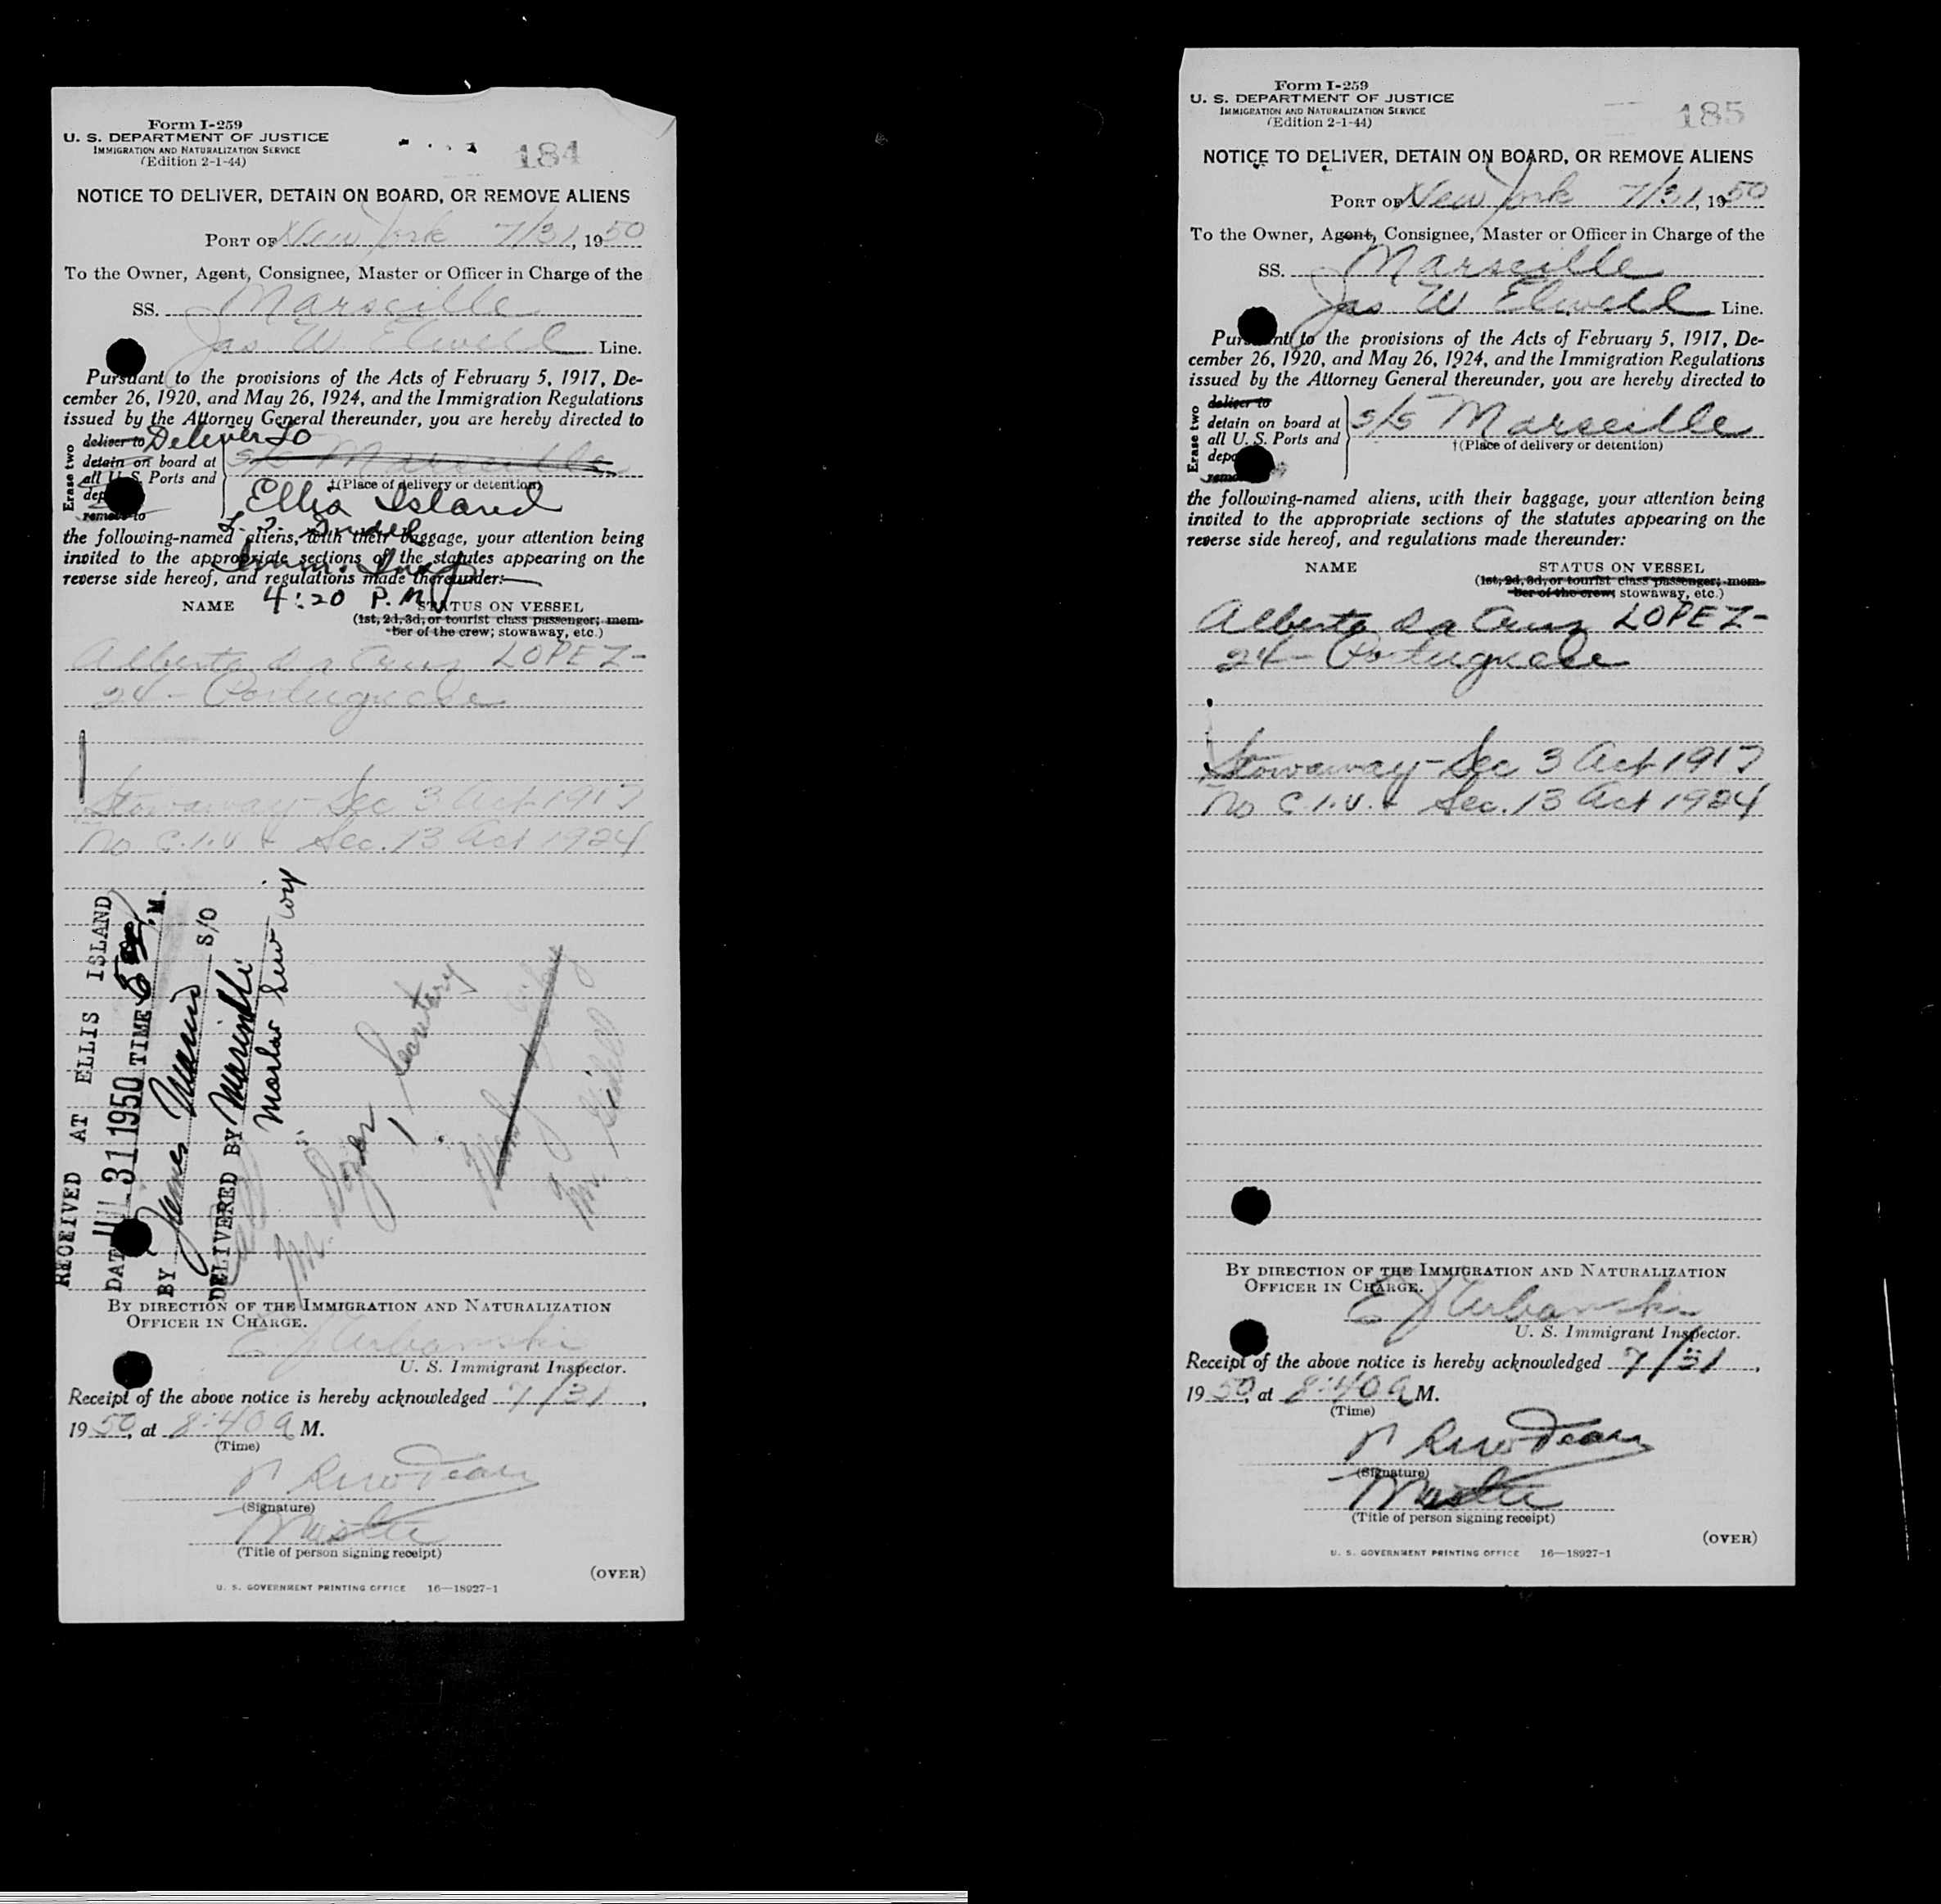 Form I-259
U. S. DEPARTMENT OF JUSTICE
IMMIGRATION AND NATURALIZATION SERVICE
(Edition 2-1-44)
184
NOTICE TO DELIVER, DETAIN ON BOARD, OR REMOVE ALIENS
PORT OF New York 7/31, 1950
To the Owner, Agent, Consignee, Master or Officer in Charge of the
SS. Marseille
Jas W Elwell Line.
Pursuant to the provisions of the Acts of February 5, 1917, De-
cember 26, 1920, and May 26, 1924, and the Immigration Regulations
issued by the Attorney General thereunder, you are hereby directed to
Erase two
deliver to Deliver to
detain on board at
all U. S. Ports and
remove to
s/s Marseille
†(Place of delivery or detention)
Ellis Island
the following-named aliens, with their baggage, your attention being
invited to the appropriate sections of the statutes appearing on the
reverse side hereof, and regulations made thereunder:
4:20 P.M.
NAME STATUS ON VESSEL
(1st, 2d, 3d, or tourist class passenger; mem-
ber of the crew; stowaway, etc.)
Alberto da Cruz LOPEZ-
24 - Portuguese
Stowaway - Sec 3 Act 1917
No C.I.V. & Sec. 13 Act 1924
RECEIVED AT ELLIS ISLAND
DATE JUL 31 1950 TIME M.
BY James S/O
DELIVERED BY
Secretary
BY DIRECTION OF THE IMMIGRATION AND NATURALIZATION
OFFICER IN CHARGE.
E J Urbanski
U. S. Immigrant Inspector.
Receipt of the above notice is hereby acknowledged 7/31,
1950, at 8:40 a M.
(Time)
(Signature)
Master
(Title of person signing receipt)
(OVER)
U. S. GOVERNMENT PRINTING OFFICE 16—18927-1
Form I-259
U. S. DEPARTMENT OF JUSTICE
IMMIGRATION AND NATURALIZATION SERVICE
(Edition 2-1-44)
185
NOTICE TO DELIVER, DETAIN ON BOARD, OR REMOVE ALIENS
PORT OF New York 7/31, 1950
To the Owner, Agent, Consignee, Master or Officer in Charge of the
SS. Marseille
Jas W Elwell Line.
Pursuant to the provisions of the Acts of February 5, 1917, De-
cember 26, 1920, and May 26, 1924, and the Immigration Regulations
issued by the Attorney General thereunder, you are hereby directed to
Erase two
deliver to
detain on board at
all U. S. Ports and
s/s Marseille
†(Place of delivery or detention)
the following-named aliens, with their baggage, your attention being
invited to the appropriate sections of the statutes appearing on the
reverse side hereof, and regulations made thereunder:
NAME STATUS ON VESSEL
(1st, 2d, 3d, or tourist class passenger; mem-
ber of the crew; stowaway, etc.)
Alberto da Cruz LOPEZ-
24 - Portuguese
Stowaway - Sec 3 Act 1917
No C.I.V. & Sec. 13 Act 1924
BY DIRECTION OF THE IMMIGRATION AND NATURALIZATION
OFFICER IN CHARGE.
E J Urbanski
U. S. Immigrant Inspector.
Receipt of the above notice is hereby acknowledged 7/31,
1950, at 8:40 a M.
(Time)
(Signature)
Master
(Title of person signing receipt)
(OVER)
U. S. GOVERNMENT PRINTING OFFICE 16—18927-1